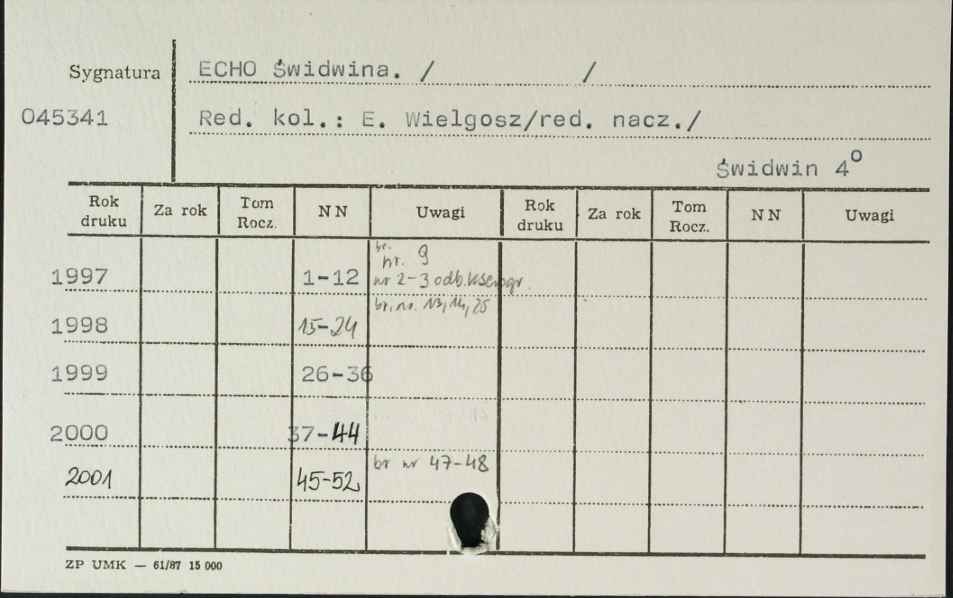 Sygnatura ECHO Świdwina. / /
045341 Red. kol.: E. Wielgosz/red. nacz./
Świdwin 4°
Rok druku Za rok Tom Rocz. NN Uwagi Rok druku Za rok Tom Rocz. NN Uwagi
br.
nr. 9
1997 1-12 nr 2-3 odb. kserogr.
br. nr. 13, 14, 25
1998 15-24
1999 26-36
2000 37-44
br nr 47-48
2001 45-52
ZP UMK — 61/87 15 000